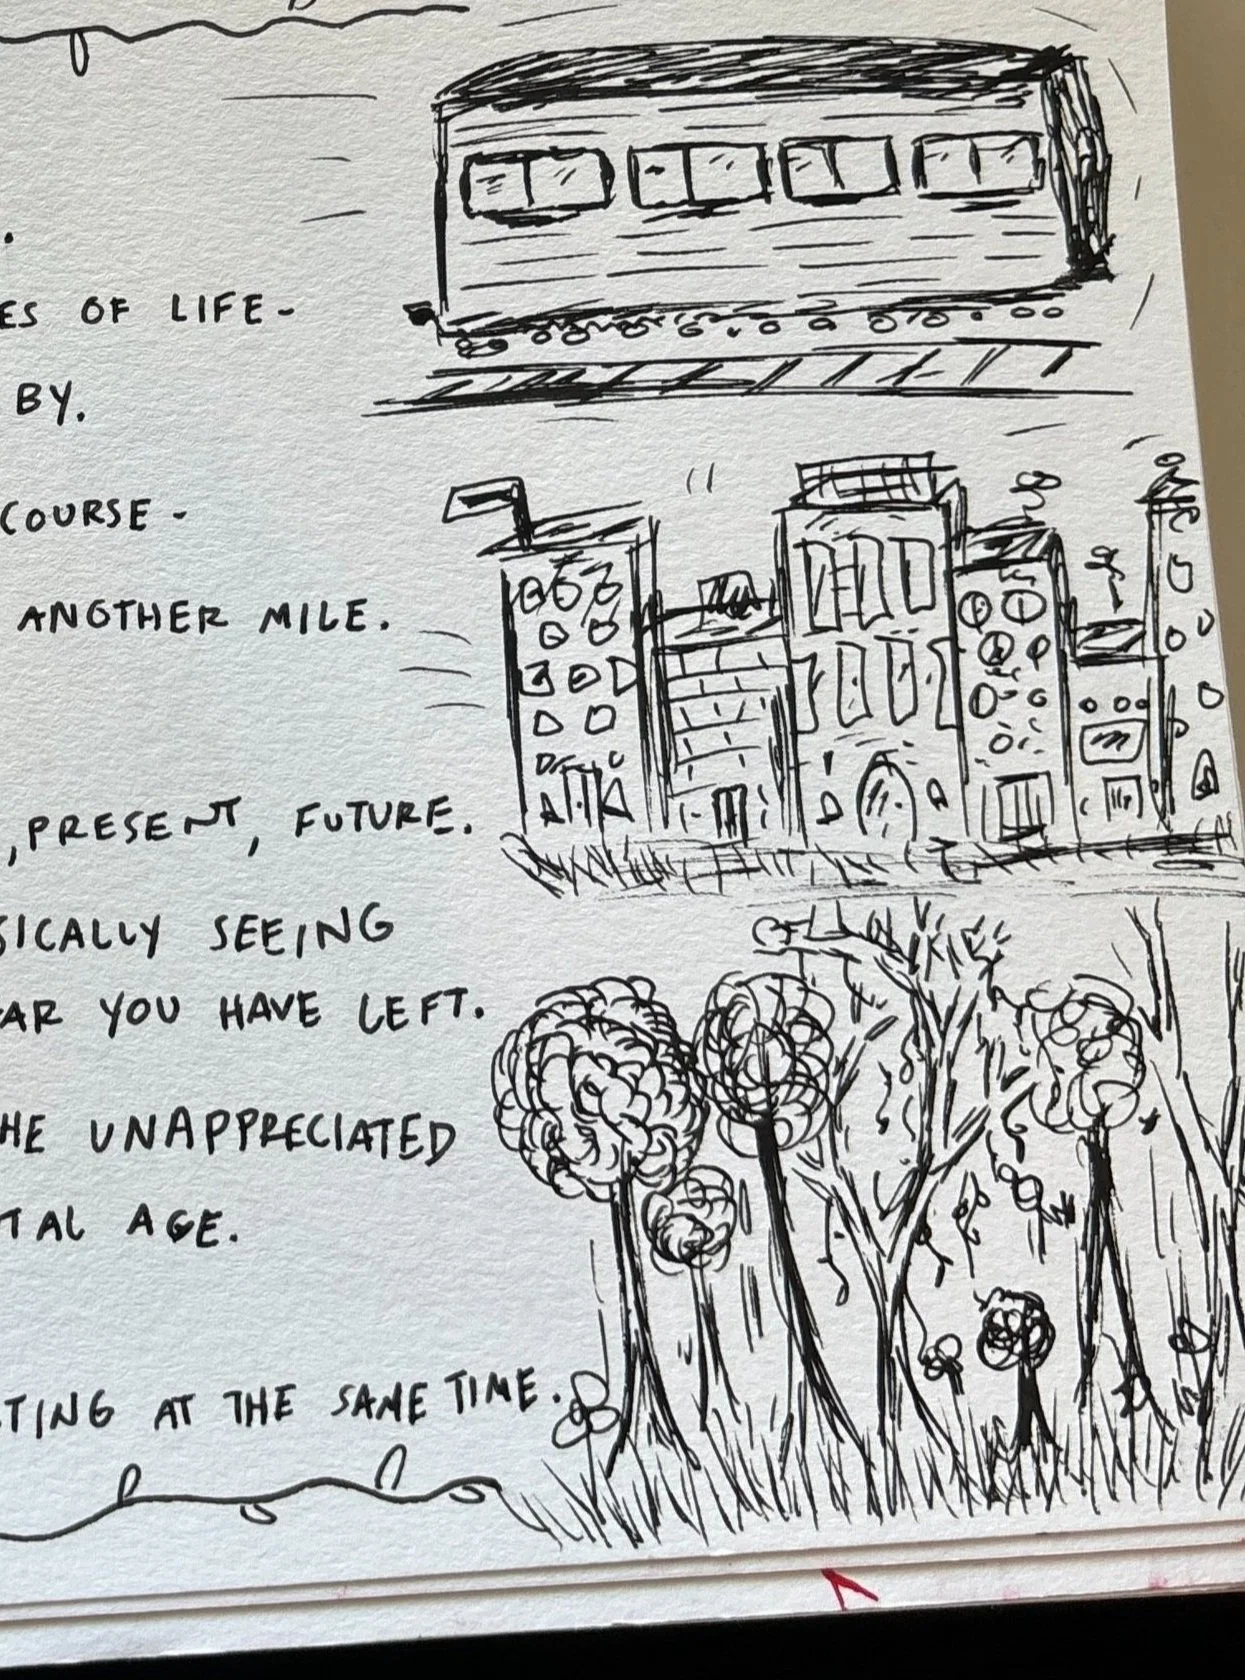 .
ES OF LIFE-
BY.
COURSE -
ANOTHER MILE.
, PRESENT, FUTURE.
SICALLY SEEING
AR YOU HAVE LEFT.
HE UNAPPRECIATED
TAL AGE.
TING AT THE SAME TIME.